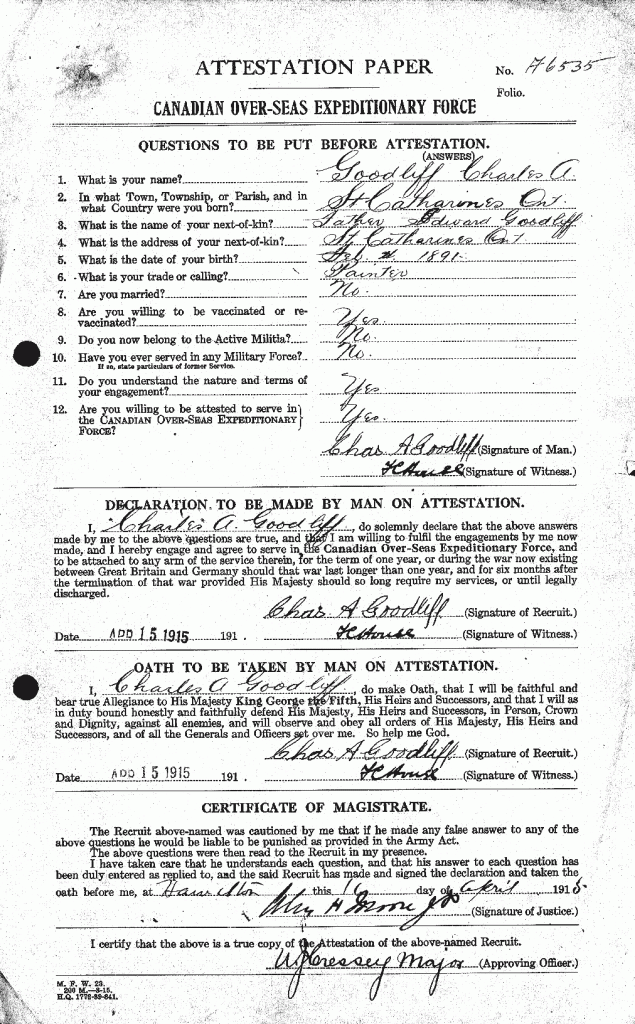 ATTESTATION PAPER
No. 76535
Folio.
CANADIAN OVER-SEAS EXPEDITIONARY FORCE
QUESTIONS TO BE PUT BEFORE ATTESTATION.
(ANSWERS)
1. What is your name? Goodliff Charles A.
2. In what Town, Township, or Parish, and in what Country were you born? St Catharines Ont
3. What is the name of your next-of-kin? Father Edward Goodliff
4. What is the address of your next-of-kin? St Catharines Ont
5. What is the date of your birth? Feb 1891
6. What is your trade or calling? Painter
7. Are you married? No.
8. Are you willing to be vaccinated or re-vaccinated? Yes.
9. Do you now belong to the Active Militia? No.
10. Have you ever served in any Military Force? No.
If so, state particulars of former Service.
11. Do you understand the nature and terms of your engagement? Yes
12. Are you willing to be attested to serve in the CANADIAN OVER-SEAS EXPEDITIONARY FORCE? Yes.
Chas A Goodliff (Signature of Man.)
F C House (Signature of Witness.)
DECLARATION TO BE MADE BY MAN ON ATTESTATION.
I, Charles A Goodliff, do solemnly declare that the above answers
made by me to the above questions are true, and that I am willing to fulfil the engagements by me now
made, and I hereby engage and agree to serve in the Canadian Over-Seas Expeditionary Force, and
to be attached to any arm of the service therein, for the term of one year, or during the war now existing
between Great Britain and Germany should that war last longer than one year, and for six months after
the termination of that war provided His Majesty should so long require my services, or until legally
discharged.
Chas A Goodliff (Signature of Recruit.)
Date APR 15 1915 191 . F C House (Signature of Witness.)
OATH TO BE TAKEN BY MAN ON ATTESTATION.
I, Charles A Goodliff, do make Oath, that I will be faithful and
bear true Allegiance to His Majesty King George the Fifth, His Heirs and Successors, and that I will as
in duty bound honestly and faithfully defend His Majesty, His Heirs and Successors, in Person, Crown
and Dignity, against all enemies, and will observe and obey all orders of His Majesty, His Heirs and
Successors, and of all the Generals and Officers set over me. So help me God.
Chas A Goodliff (Signature of Recruit.)
Date APR 15 1915 191 . F C House (Signature of Witness.)
CERTIFICATE OF MAGISTRATE.
The Recruit above-named was cautioned by me that if he made any false answer to any of the
above questions he would be liable to be punished as provided in the Army Act.
The above questions were then read to the Recruit in my presence.
I have taken care that he understands each question, and that his answer to each question has
been duly entered as replied to, and the said Recruit has made and signed the declaration and taken the
oath before me, at Hamilton this 16 day of April 1915
(Signature of Justice.)
I certify that the above is a true copy of the Attestation of the above-named Recruit.
Cressey Major (Approving Officer.)
M. F. W. 23.
200 M.—3-15.
H.Q. 1772-39-841.